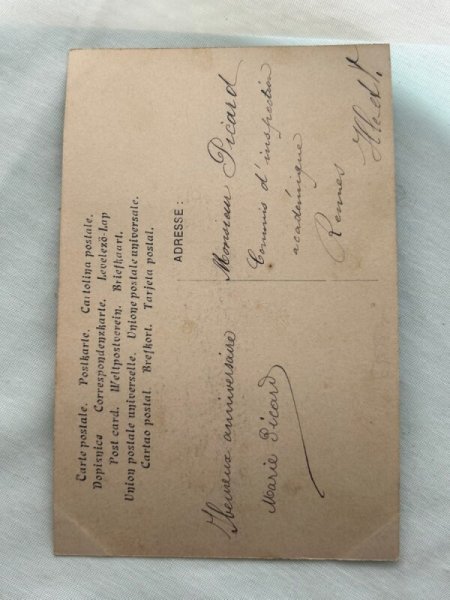 Carte postale. Postkarte. Cartolina postale.
Dopisnica Correspondenzkarte. Levelező-Lap
Post card. Weltpostverein. Briefkaart.
Union postale universelle. Unione postale universale.
Cartao postal Brefkort. Tarjeta postal.
ADRESSE :
Heureux anniversaire
Marie Picard
Monsieur Picard
Commis d'inspection
académique
Rennes